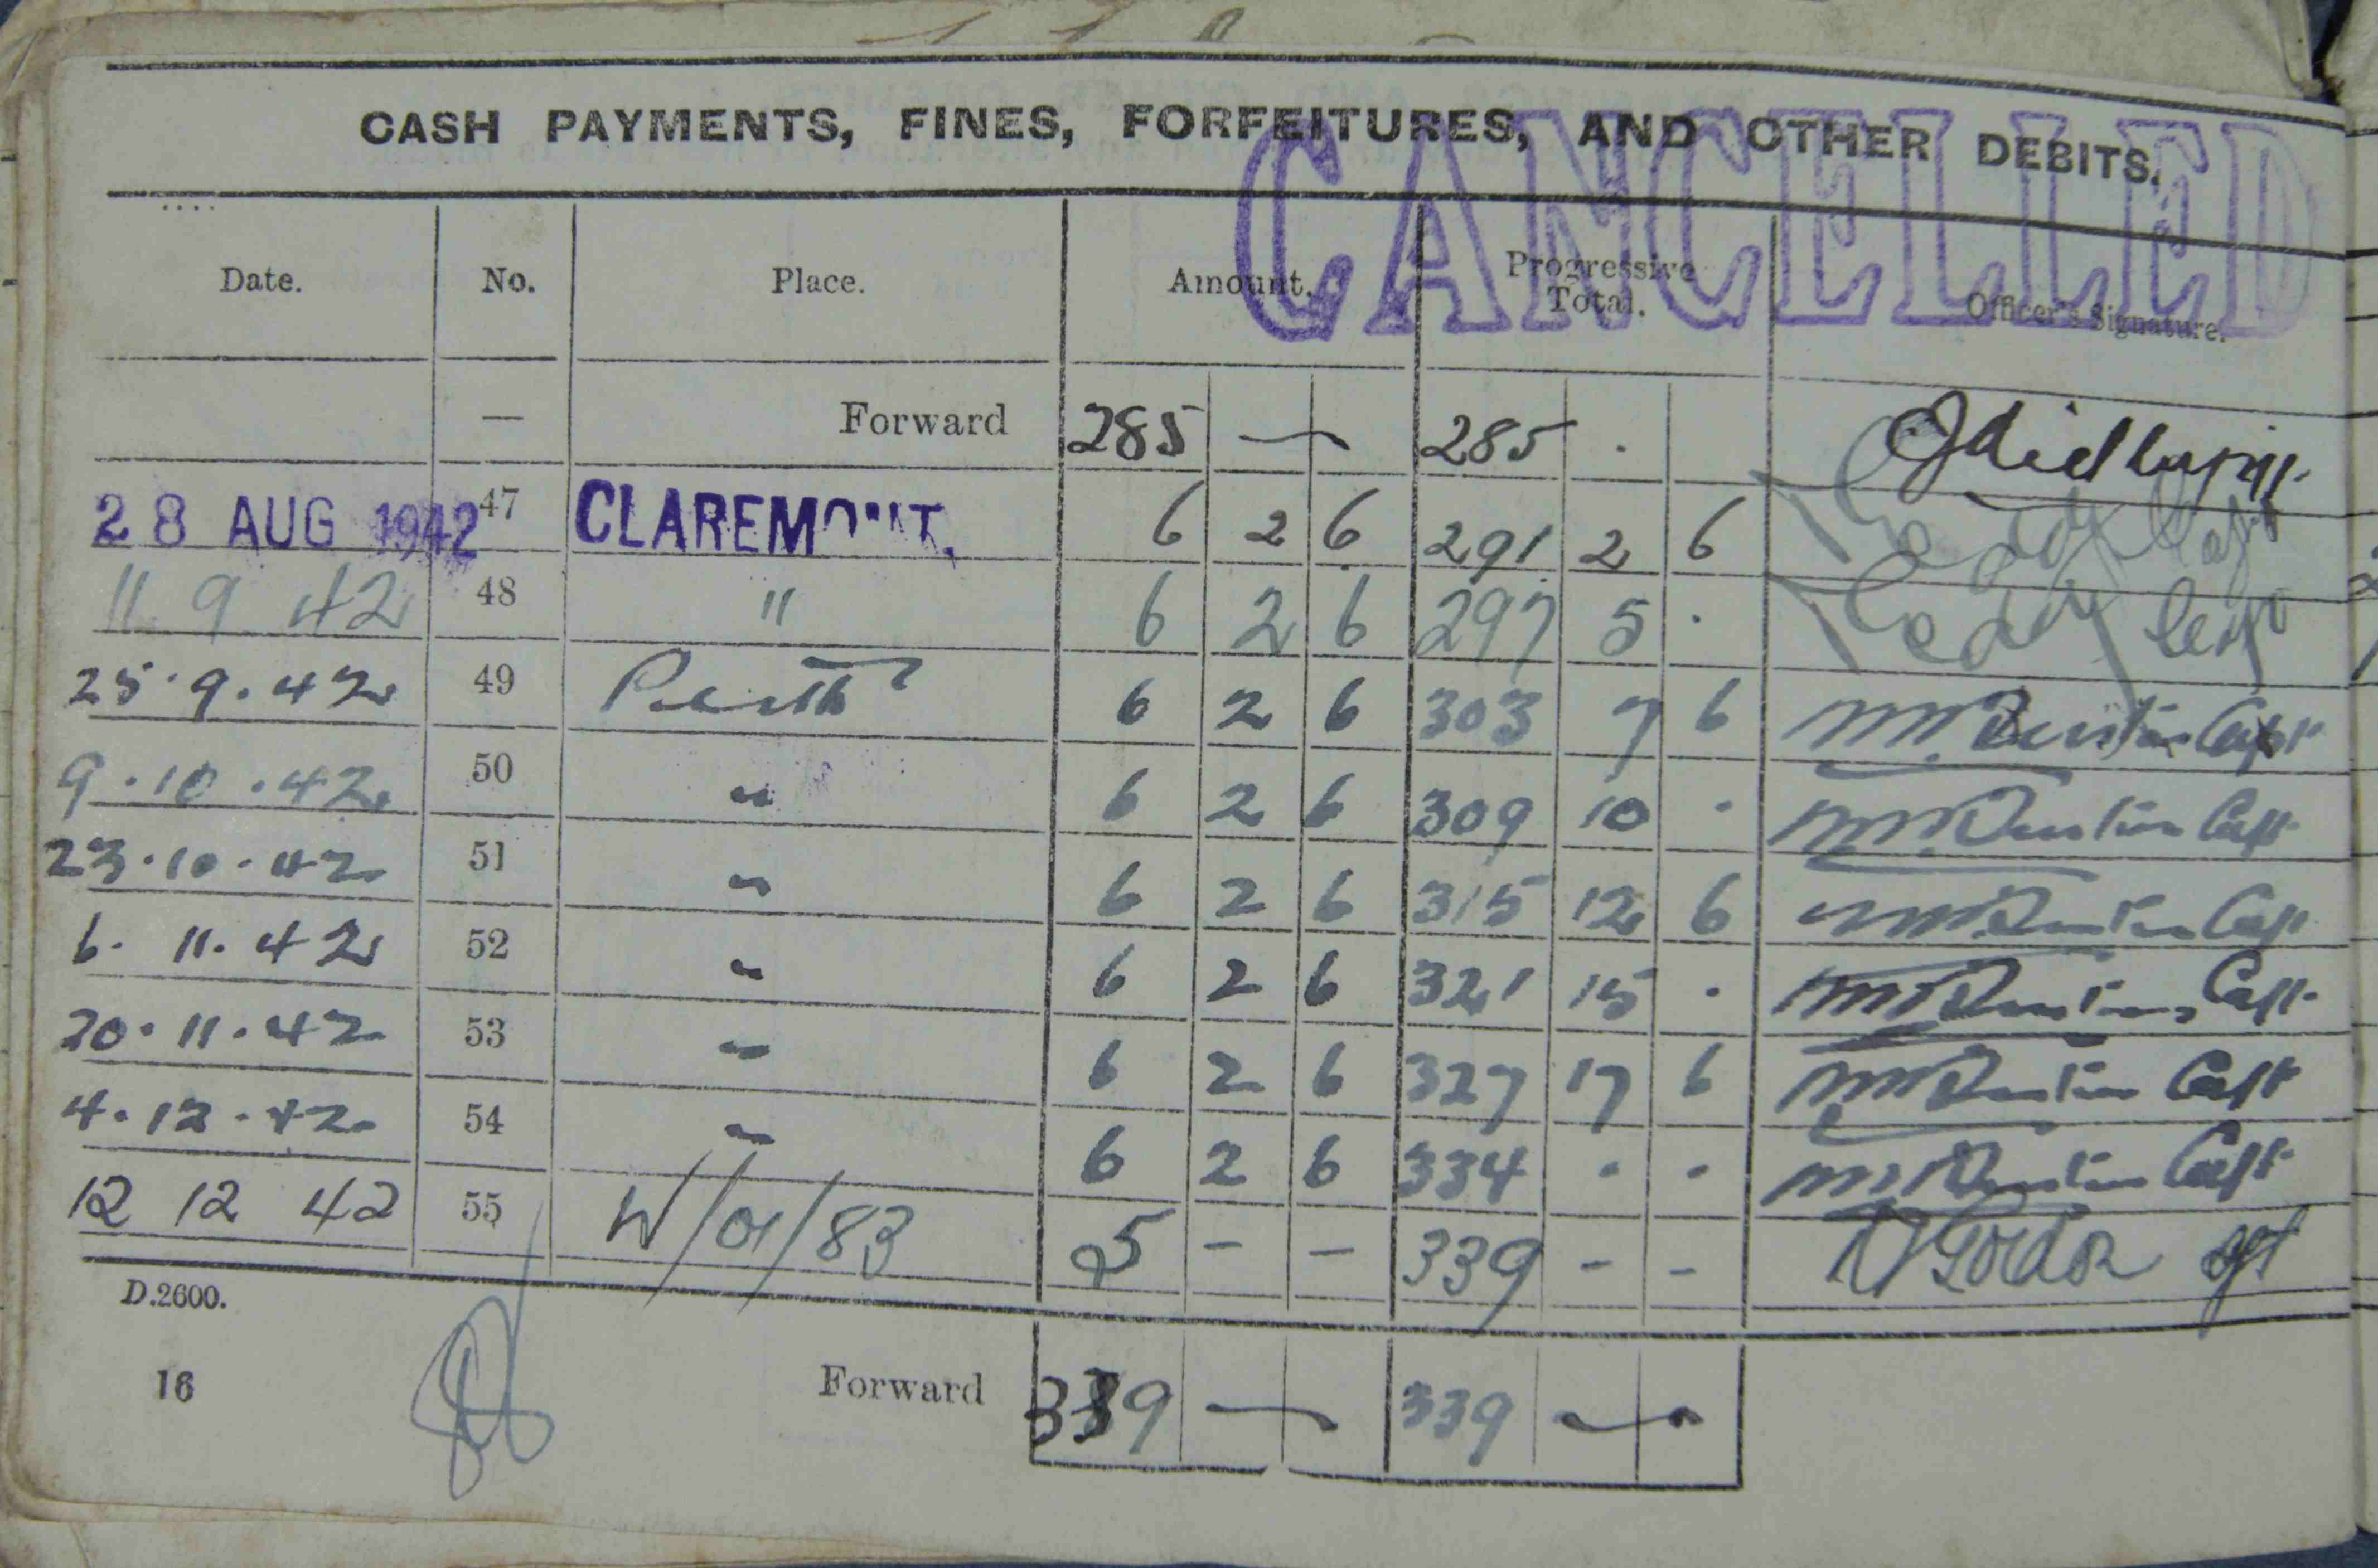 CASH PAYMENTS, FINES, FORFEITURES, AND OTHER DEBITS.
CANCELLED
Date. No. Place. Amount. Progressive Total. Officer's Signature.
— Forward 285 — 285 .
28 AUG 1942 47 CLAREMONT. 6 2 6 291 2 6
11 9 42 48 " 6 2 6 297 5 .
25.9.42 49 Perth 6 2 6 303 7 6 Capt
9.10.42 50 " 6 2 6 309 10 . Capt
23.10.42 51 " 6 2 6 315 12 6 Capt
6.11.42 52 " 6 2 6 321 15 . Capt
20.11.42 53 " 6 2 6 327 17 6 Capt
4.12.42 54 " 6 2 6 334 . . Capt
12 12 42 55 W/01/83 5 - - 339 - -
D.2600.
16 Forward 339 — 339 —